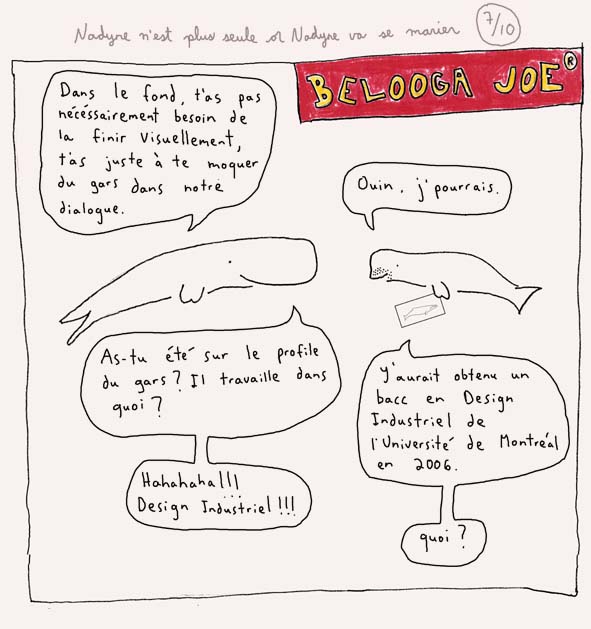 Nadyne n'est plus seule or Nadyne va se marier 7/10
BELOOGA JOE®
Dans le fond, t'as pas
nécéssairement besoin de
la finir visuellement,
t'as juste à te moquer
du gars dans notre
dialogue.
Ouin, j'pourrais.
As-tu été sur le profile
du gars? Il travaille dans
quoi?
Y'aurait obtenu un
bacc en Design
Industriel de
l'Université de Montréal
en 2006.
Hahahaha!!!
Design Industriel!!!
quoi?